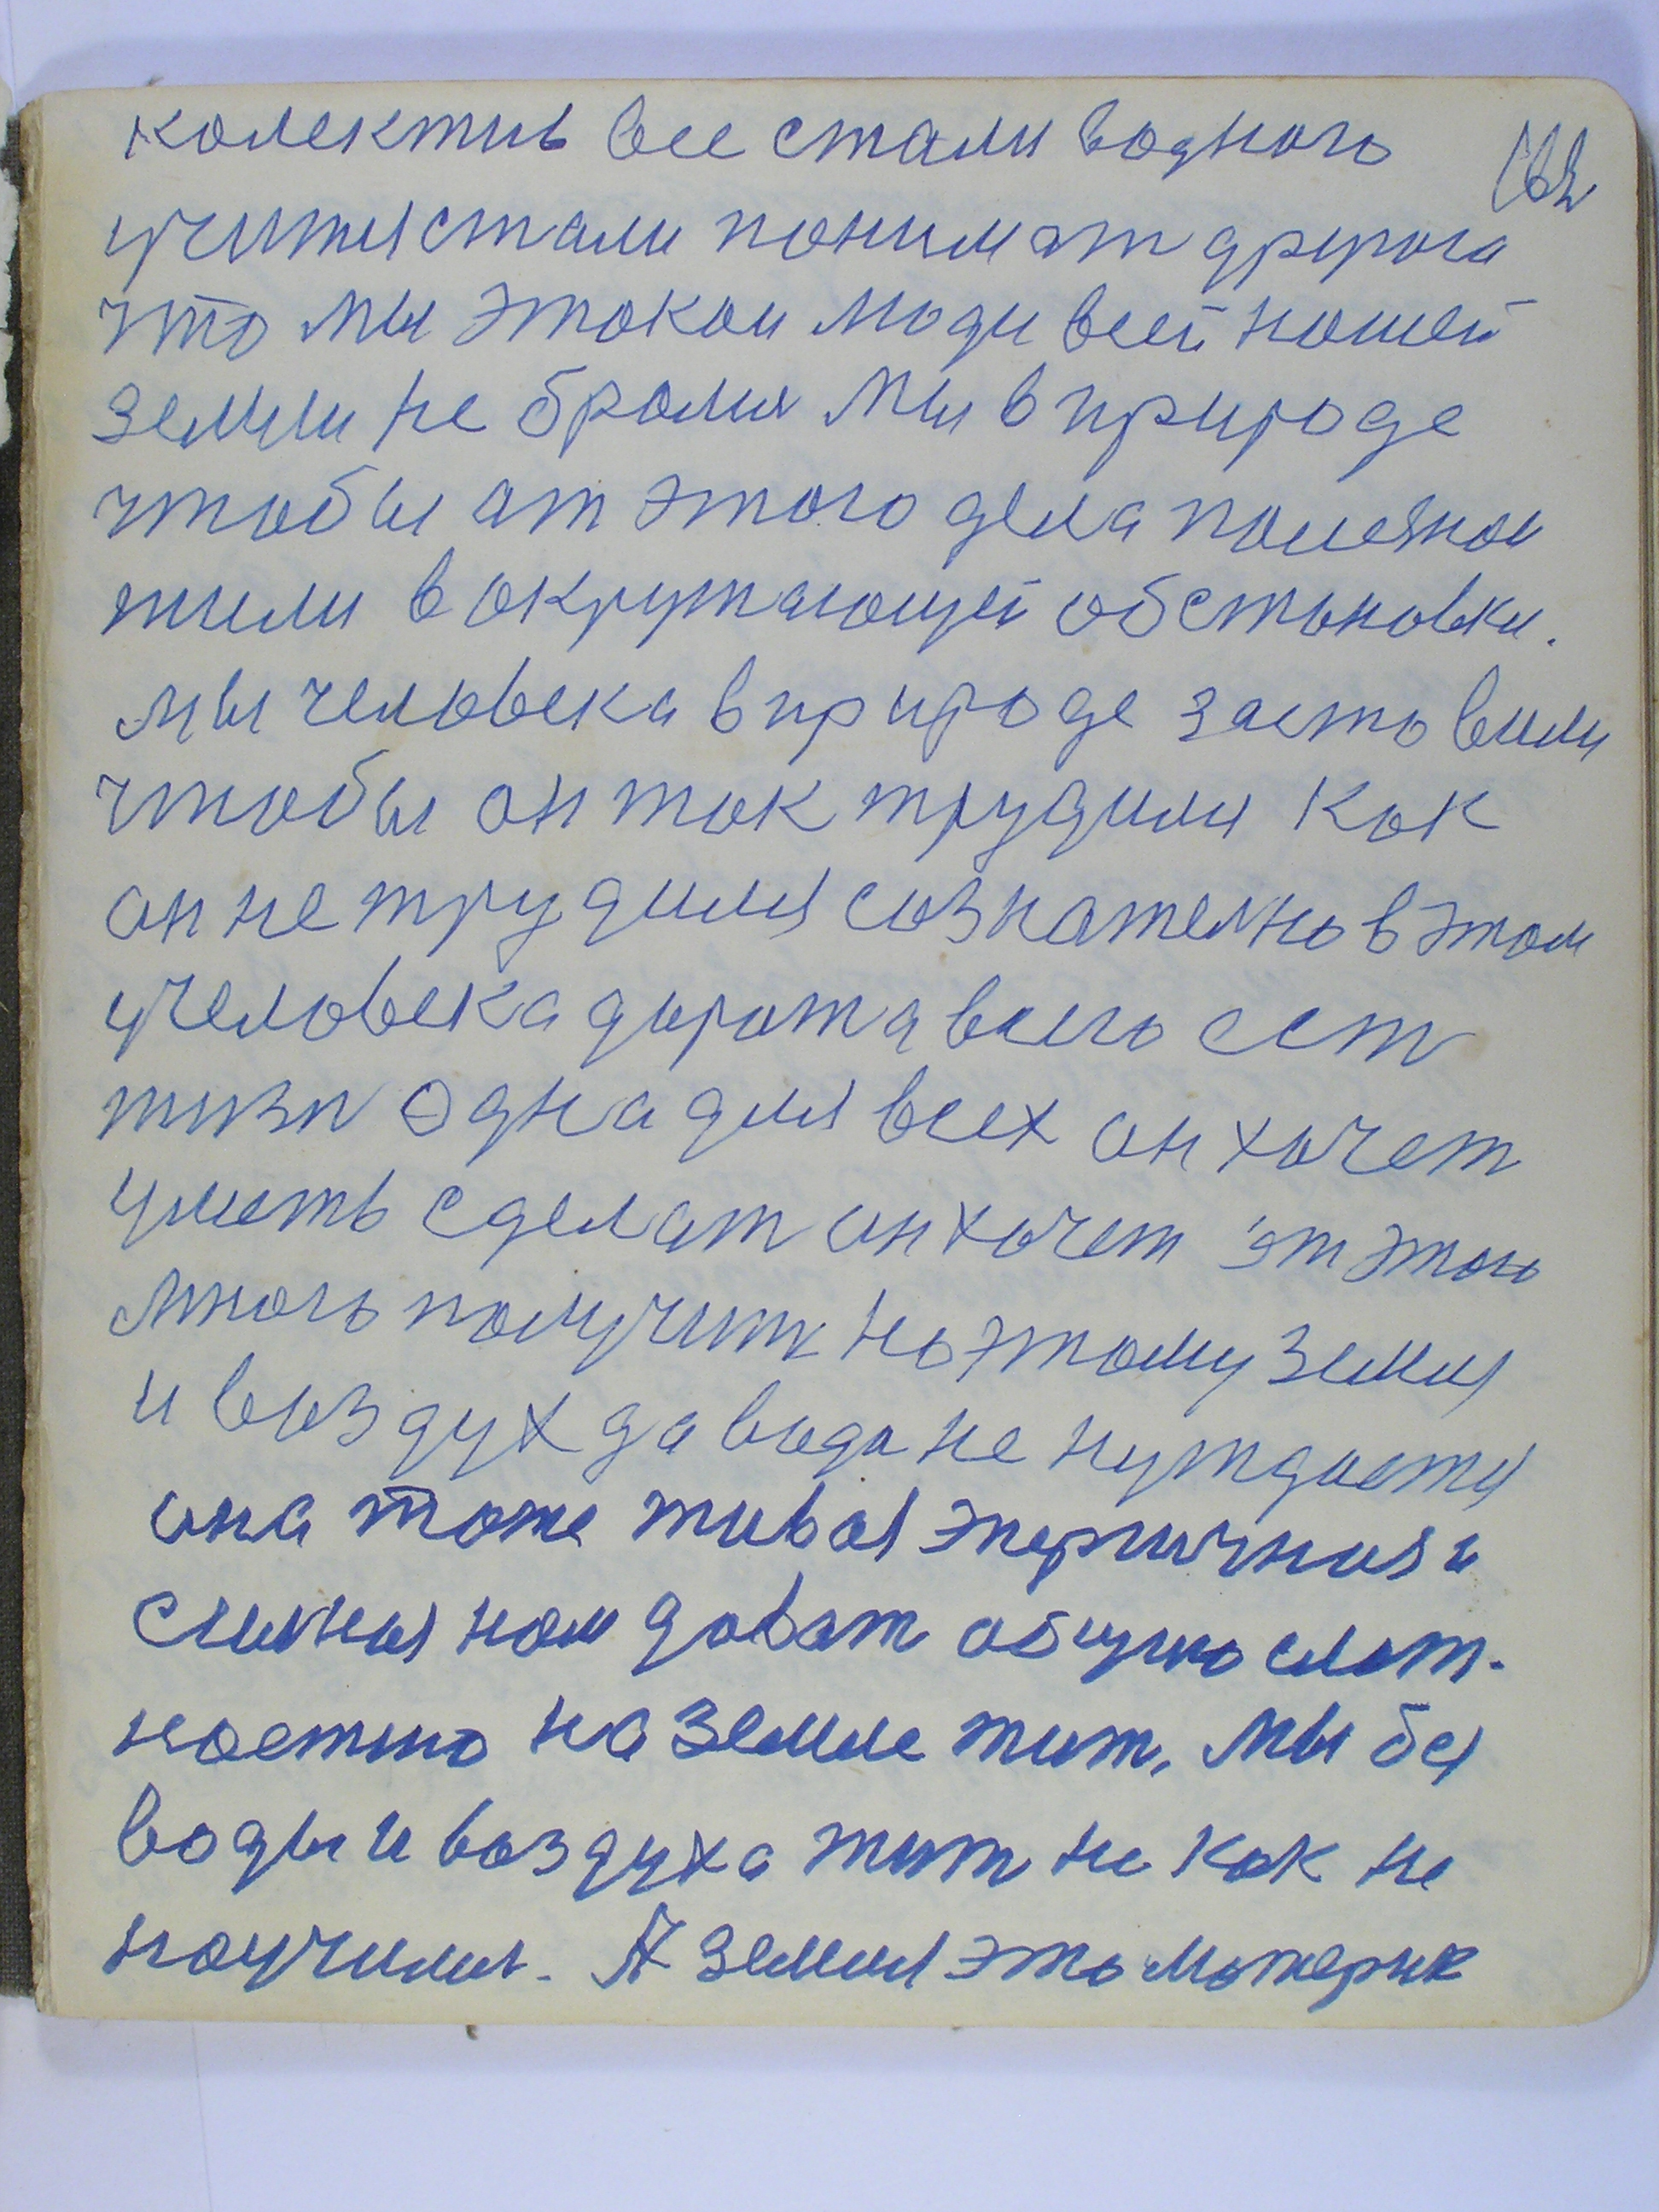 колектив все стали водного
162
учитя стали понимат дрграга
что мы этакаи люди всей нашей
земли не брали мы в природе
чтобы от этого дела полезнои
жили в окружающей обстоновки.
мы человека в природе застовили
чтобы он ток трудился как
он не трудился сознателно в этом
у человека дорога всего ест
жизн одна для всех он хочет
уметь сделат он хочет от этого
много получит по этому земля
и воздух да вода не нуждается
она тоже живая энергичная и
силная нам давать общюю
ностю на земле жит. мы без
воды и воздуха жит не как не
научились. А земля это матерык